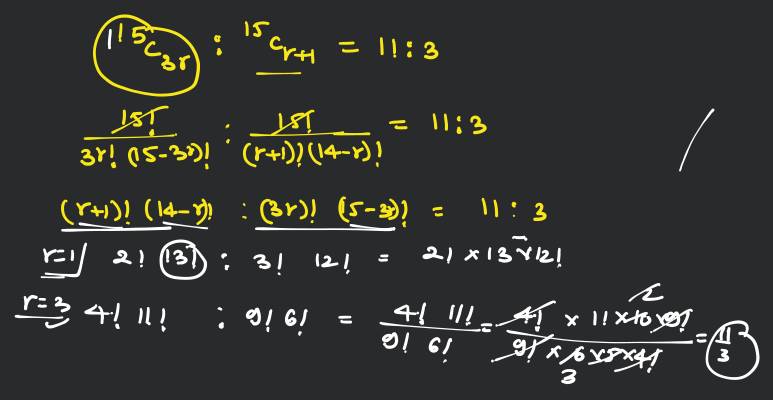 ¹⁵C₃ᵣ : ¹⁵Cᵣ₊₁ = 11 : 3
15! / 3r! (15-3r)! : 15! / (r+1)! (14-r)! = 11 : 3
(r+1)! (14-r)! : (3r)! (15-3r)! = 11 : 3
r=1 2! 13! : 3! 12! = 2! × 13 × 12!
r=3 4! 11! : 9! 6! = 4! 11! / 9! 6! = 4! × 11 × 10 × 9! / 9! × 6 × 5 × 4! = 11/3
2
3